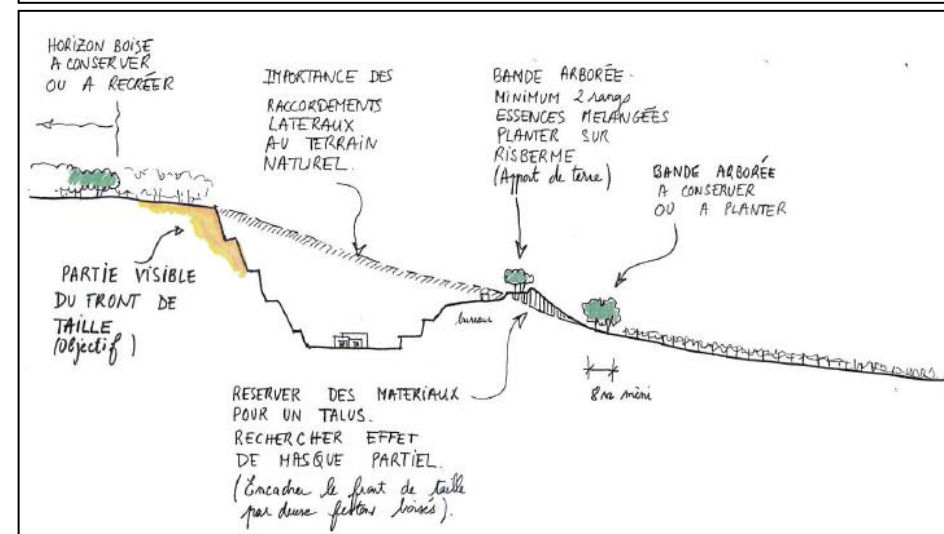 HORIZON BOISE
A CONSERVER
OU A RECRÉER
IMPORTANCE DES
RACCORDEMENTS
LATERAUX
AU TERRAIN
NATUREL.
BANDE ARBORÉE.
MINIMUM 2 rangs
ESSENCES MELANGÉES
PLANTER SUR
RISBERME
(Apport de terre)
BANDE ARBORÉE
A CONSERVER
OU A PLANTER
PARTIE VISIBLE
DU FRONT DE
TAILLE
(Objectif)
bureau
8m mini
RESERVER DES MATERIAUX
POUR UN TALUS.
RECHERCHER EFFET
DE MASQUE PARTIEL.
(Encadrer le front de taille
par deux festons boisés).